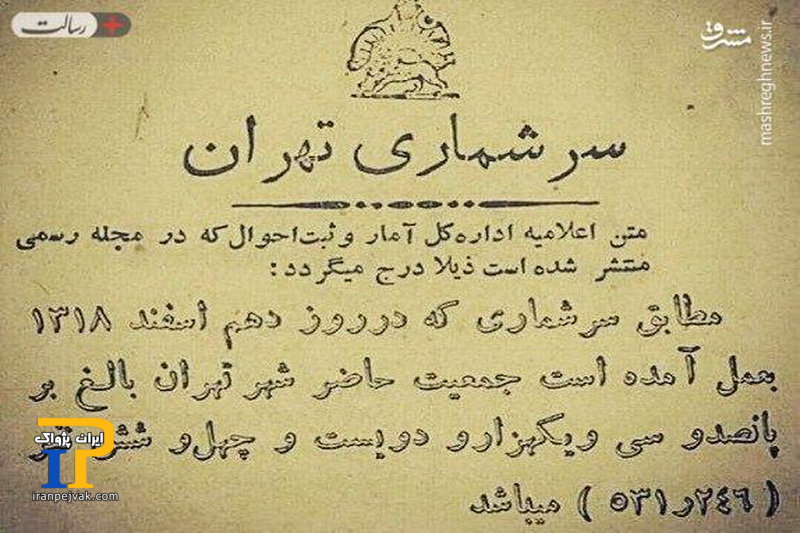 رسالت
مشرق
mashreghnews.ir
سر شماری تهران
متن اعلامیه اداره کل آمار و ثبت احوال که در مجله رسمی
منتشر شده است ذیلا درج میگردد:
مطابق سرشماری که در روز دهم اسفند ۱۳۱۸
بعمل آمده است جمعیت حاضر شهر تهران بالغ بر
پانصدو سی ویکهزارو دویست و چهل و شش نفر
(۵۳۱ر۲٤۶) میباشد
ایران پژواک
iranpejvak.com